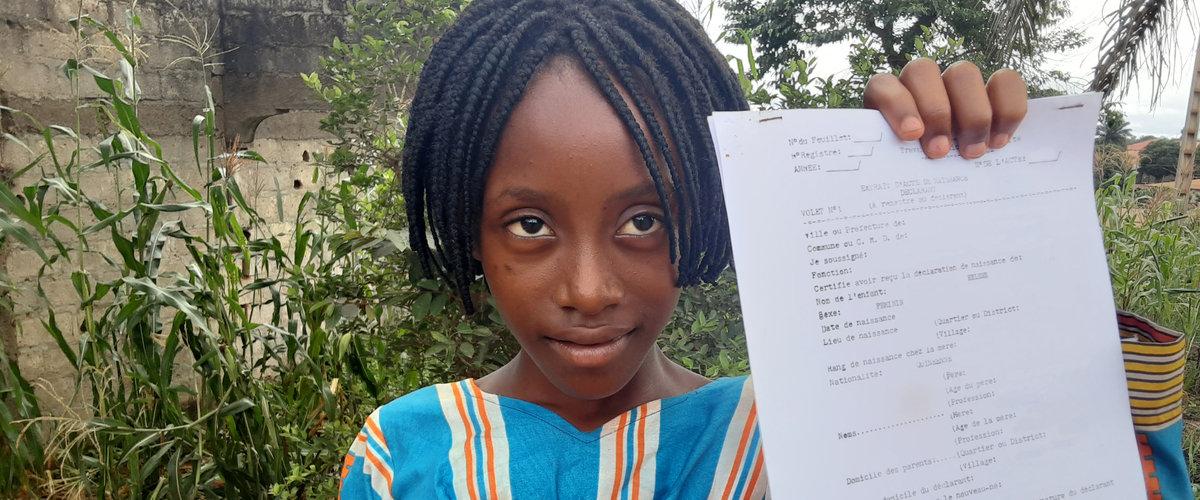 N° du Feuillet:
N° Registre:
ANNEE:
N° DE L'ACTE:
EXTRAIT D'ACTE DE NAISSANCE
VOLET N°1 (A remettre au déclarant)
Ville ou Préfecture de:
Commune ou C. R. D. de:
Je soussigné:
Fonction:
Certifie avoir reçu la déclaration de naissance de:
Nom de l'enfant:
Sexe: FEMININ
Date de naissance
Lieu de naissance (Quartier ou District:
(Village:
Rang de naissance chez la mère:
Nationalité:
(Père:
(Age du père:
(Profession:
Noms.................(Mère:
(Age de la mère:
(Profession:
Domicile des parents:.....(Quartier ou District:
(Village:
domicile du déclarant:
le nouveau-né:
du déclarant